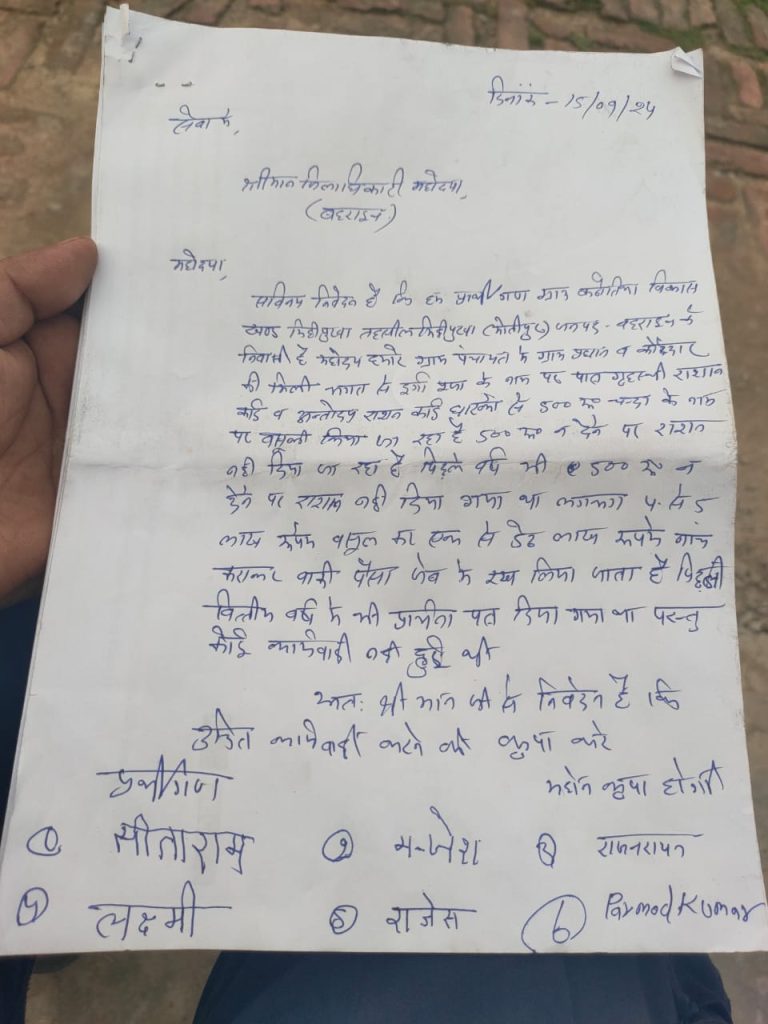 दिनांक - 15/09/24
सेवा में,
श्रीमान जिलाधिकारी महोदया,
(बहराइच)
महोदया,
सविनय निवेदन है कि हम प्रार्थीगण ग्राम विकास
खण्ड मिहींपुरवा तहसील मिहींपुरवा (मोतीपुर) जनपद - बहराइच के
निवासी है महोदय हमारे ग्राम पंचायत के ग्राम प्रधान व कोटेदार
की मिली भगत से दुर्गा पूजा के नाम पर पात्र गृहस्थी राशन
कार्ड व अन्तोदय राशन कार्ड धारकों से 500 रू चन्दा के नाम
पर वसूली किया जा रहा है 500 रू न देने पर राशन
नही दिया जा रहा है पिछले वर्ष भी 500 रू न
देने पर राशन नही दिया गया था लगभग 4 से 5
लाख रूपये वसूल कर एक से डेढ लाख रूपये
कराकर बाकी पैसा जेब में रख लिया जाता है पिछली
वित्तीय वर्ष में भी प्रार्थना पत्र दिया गया था परन्तु
कोई कार्यवाही नही हुई थी
अतः श्री मान जी से निवेदन है कि
उचित कार्यवाही करने की कृपा करे
प्रार्थीगण महान कृपा होगी
① सीताराम ② मन्जेश ③ राजनरायन
④ लक्ष्मी ⑤ राजेस ⑥ Parmod Kumar